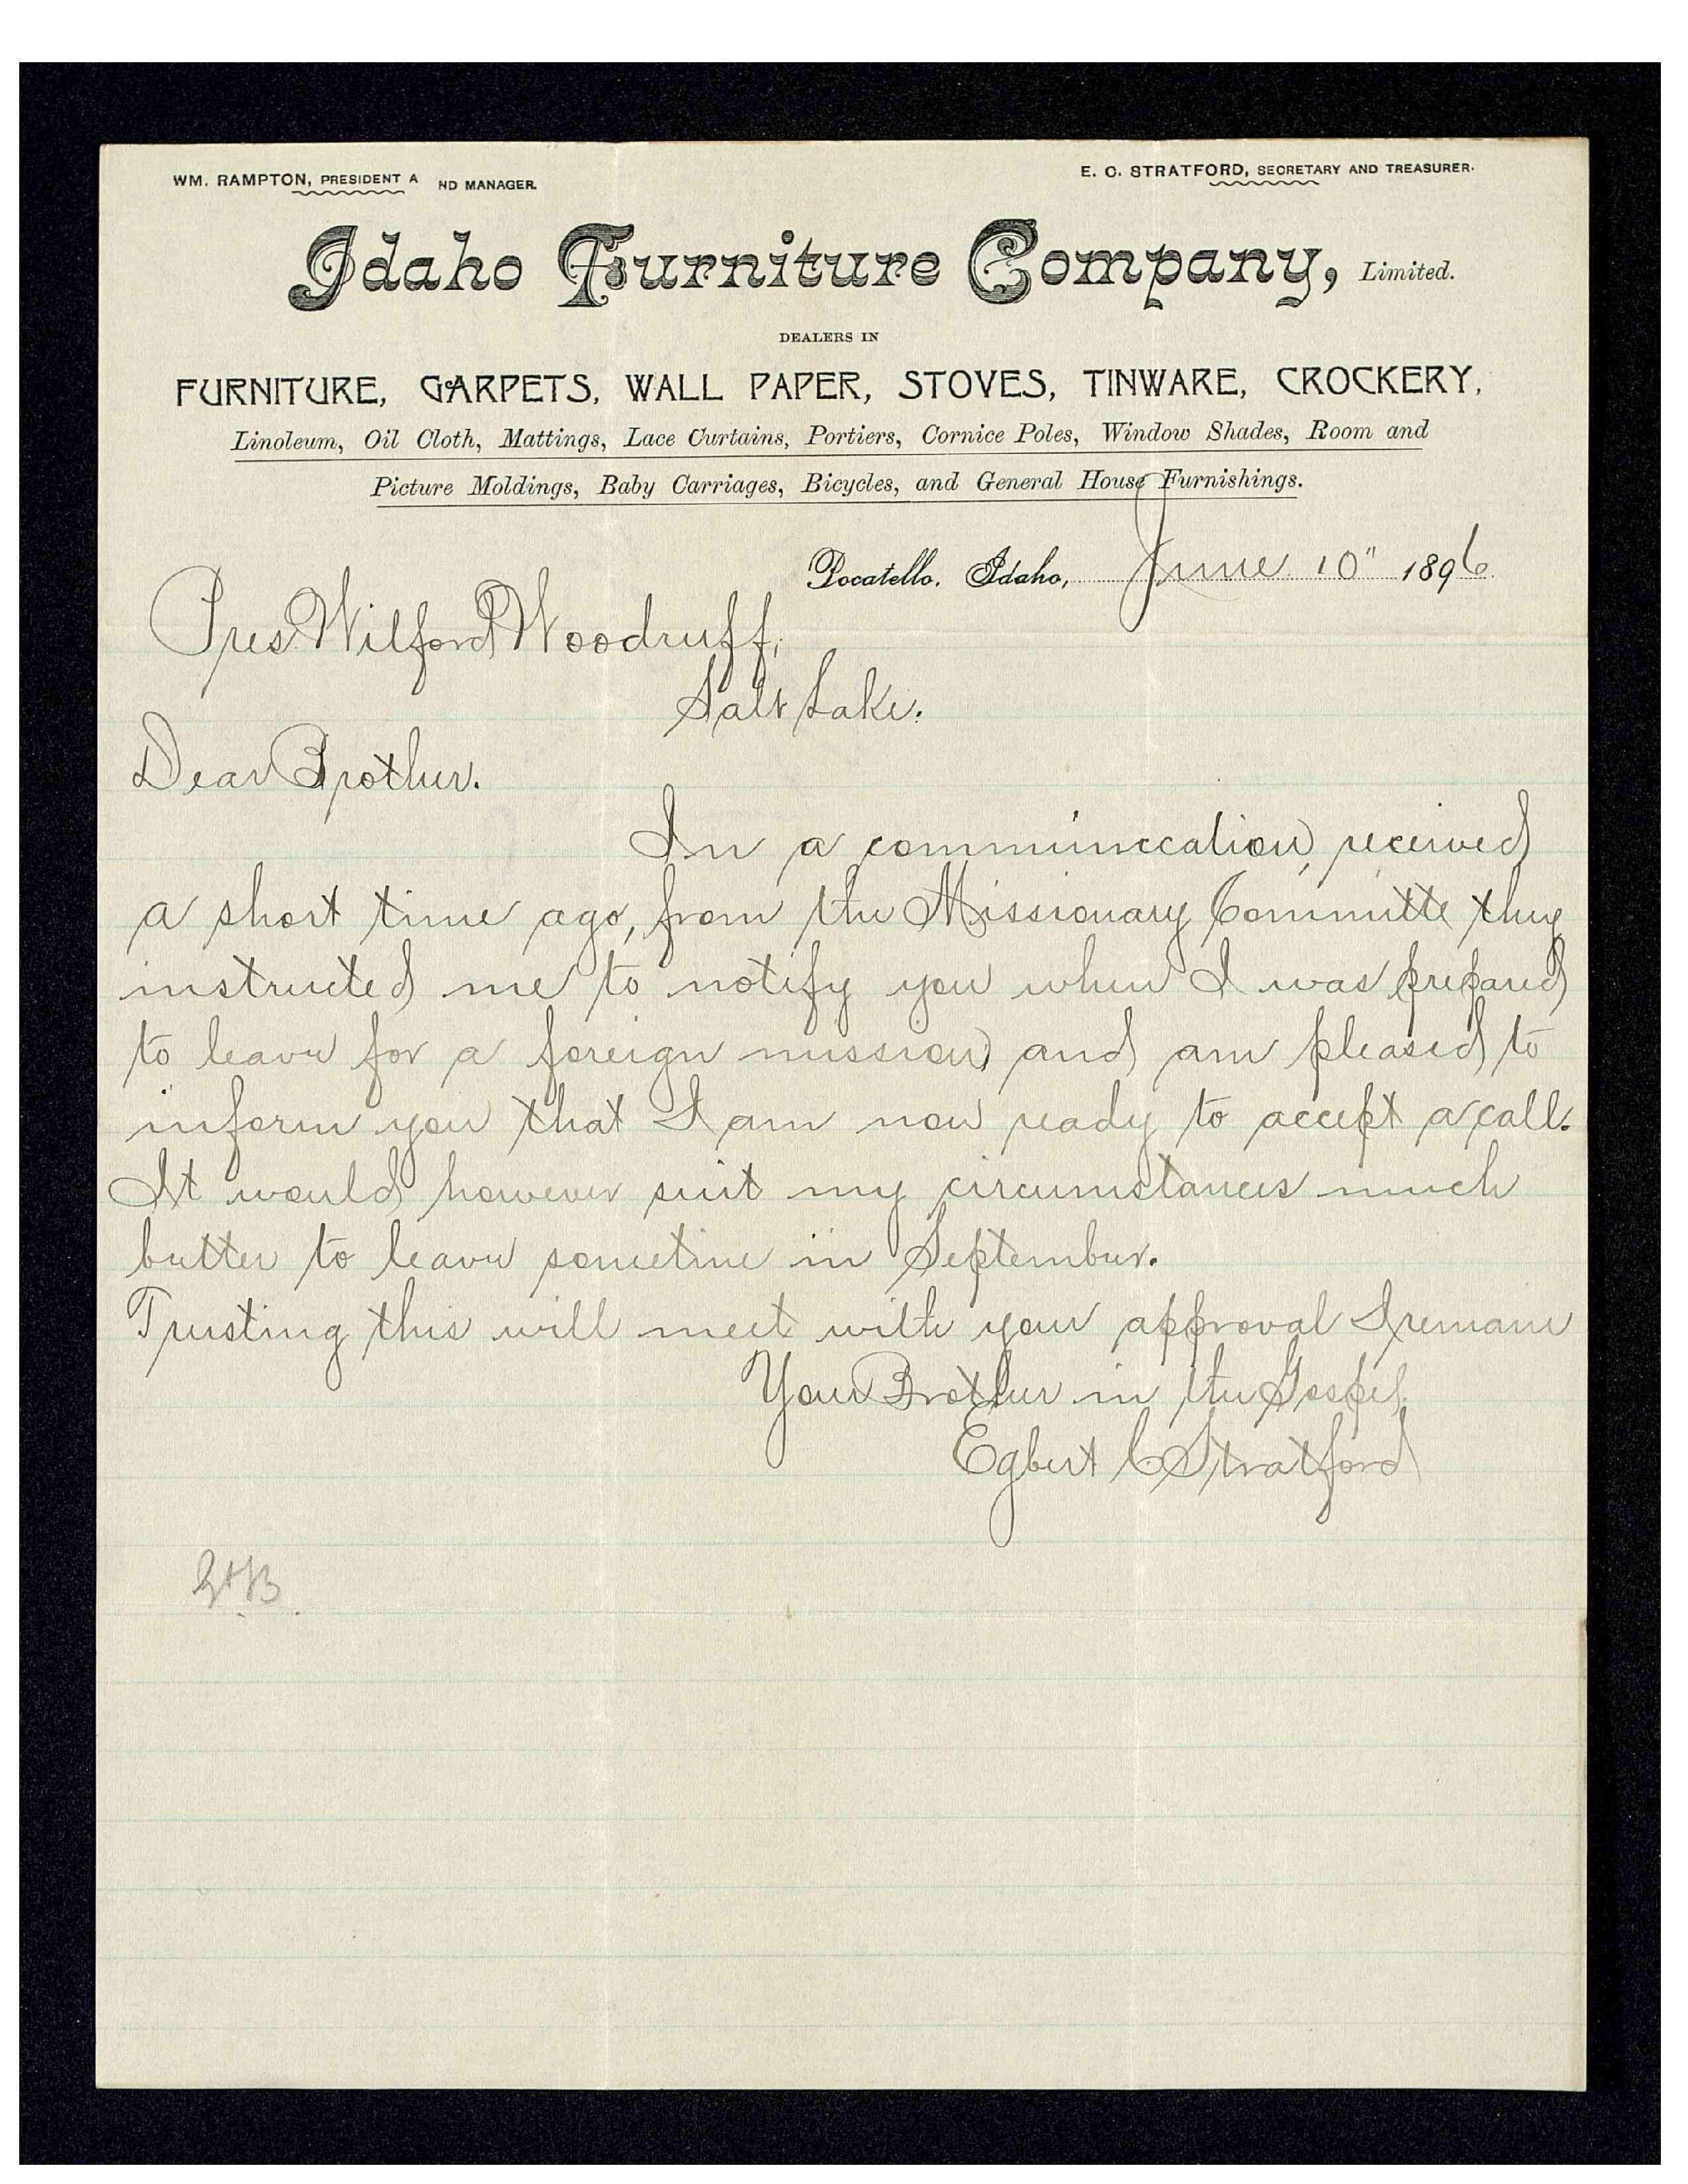 WM. RAMPTON, PRESIDENT AND MANAGER.
E. C. STRATFORD, SECRETARY AND TREASURER.
Idaho Furniture Company, Limited.
DEALERS IN
FURNITURE, CARPETS, WALL PAPER, STOVES, TINWARE, CROCKERY,
Linoleum, Oil Cloth, Mattings, Lace Curtains, Portiers, Cornice Poles, Window Shades, Room and
Picture Moldings, Baby Carriages, Bicycles, and General House Furnishings.
Pocatello, Idaho, June 10" 1896
Pres. Wilford Woodruff,
Salt Lake.
Dear Brother.
In a communiccation, received
a short time ago, from the Missionary Committe they
instructed me to notify you when I was prepared
to leave for a foreign mission and am pleased to
inform you that I am now ready to accept a call.
It would however suit my circumstances much
better to leave sometime in September.
Trusting this will meet with your approval I remain
Your Brother in the Gospel
Egbert C Stratford